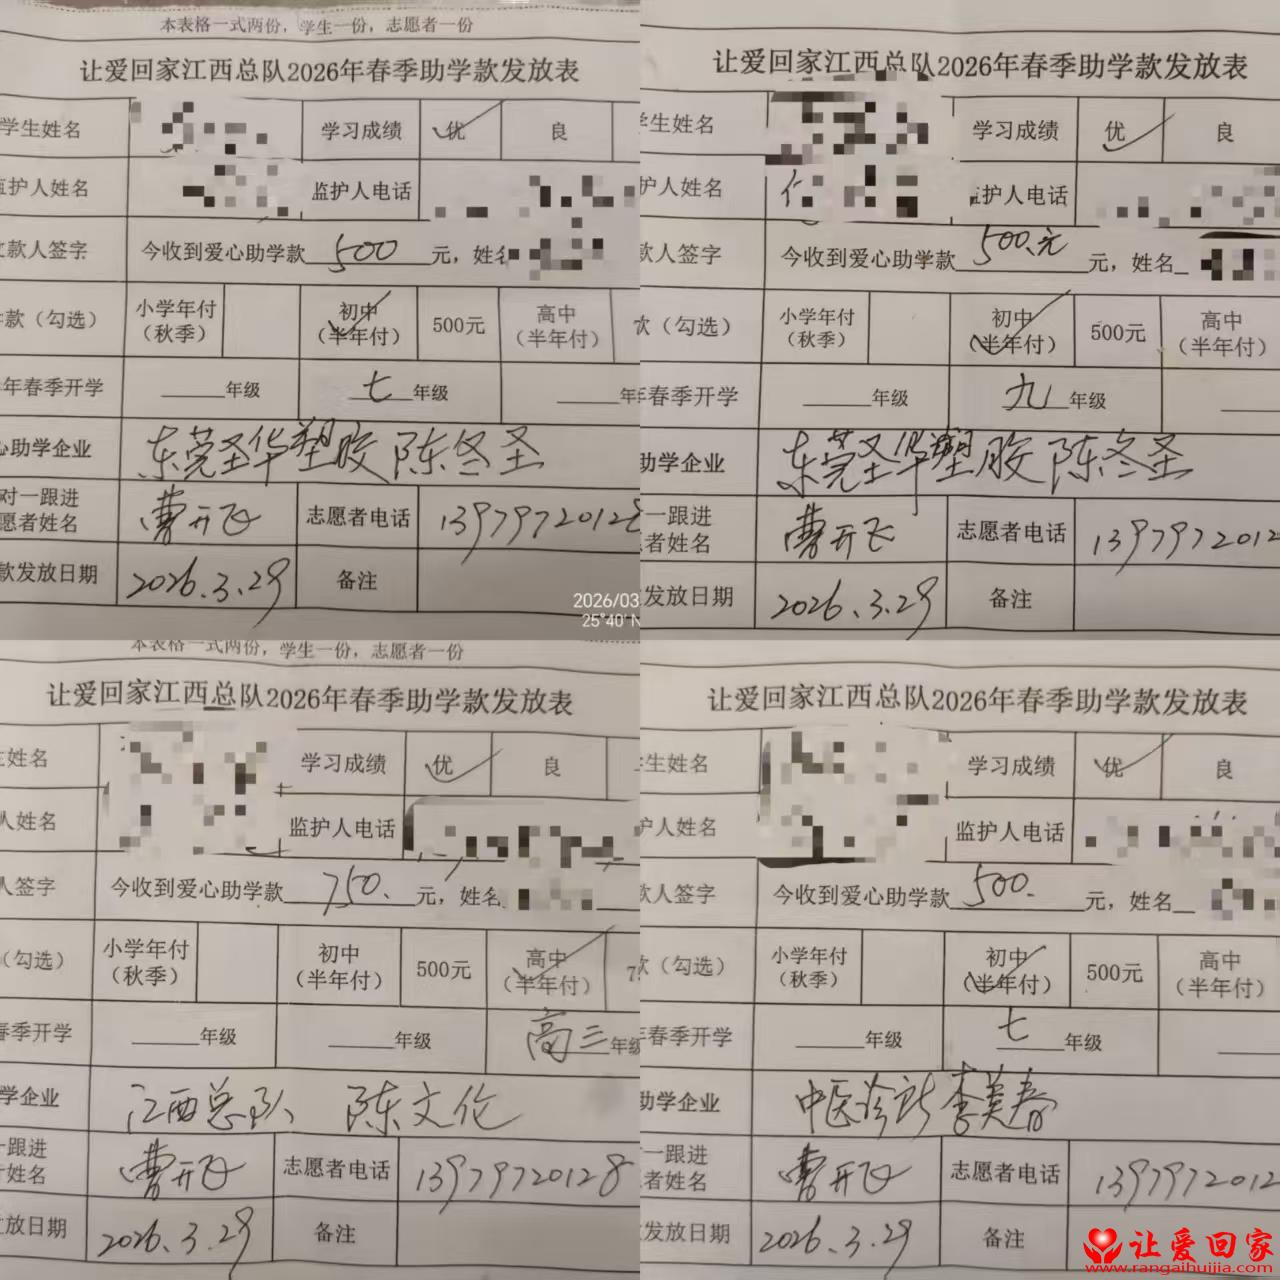 本表格一式两份，学生一份，志愿者一份
让爱回家江西总队2026年春季助学款发放表
学生姓名 学习成绩 优 良
监护人姓名 监护人电话
款人签字 今收到爱心助学款 500 元，姓名
款（勾选） 小学年付（秋季） 初中（半年付） 500元 高中（半年付）
年春季开学 年级 七 年级 年
助学企业 东莞圣华塑胶 陈冬圣
对一跟进
愿者姓名 曹开飞 志愿者电话 13979720128
款发放日期 2026.3.29 备注
2026/03
25°40' N
让爱回家江西总队2026年春季助学款发放表
学生姓名 学习成绩 优 良
护人姓名 监护人电话
款人签字 今收到爱心助学款 500.元 元，姓名
款（勾选） 小学年付（秋季） 初中（半年付） 500元 高中（半年付）
年春季开学 年级 九 年级
助学企业 东莞圣华塑胶 陈冬圣
一跟进
者姓名 曹开飞 志愿者电话 1397972012
发放日期 2026.3.29 备注
本表格一式两份，学生一份，志愿者一份
让爱回家江西总队2026年春季助学款发放表
生姓名 学习成绩 优 良
人姓名 监护人电话
人签字 今收到爱心助学款 750. 元，姓名
（勾选） 小学年付（秋季） 初中（半年付） 500元 高中（半年付） 7
春季开学 年级 年级 高三 年级
学企业 江西总队 陈文伦
一跟进
姓名 曹开飞 志愿者电话 13979720128
放日期 2026.3.29 备注
让爱回家江西总队2026年春季助学款发放表
学生姓名 学习成绩 优 良
护人姓名 监护人电话
款人签字 今收到爱心助学款 500. 元，姓名
款（勾选） 小学年付（秋季） 初中（半年付） 500元 高中（半年付）
年春季开学 年级 七 年级
助学企业 中医诊所 李美春
一跟进
者姓名 曹开飞 志愿者电话 1397972012
发放日期 2026.3.29 备注
让爱回家
www.rangaihuijia.com